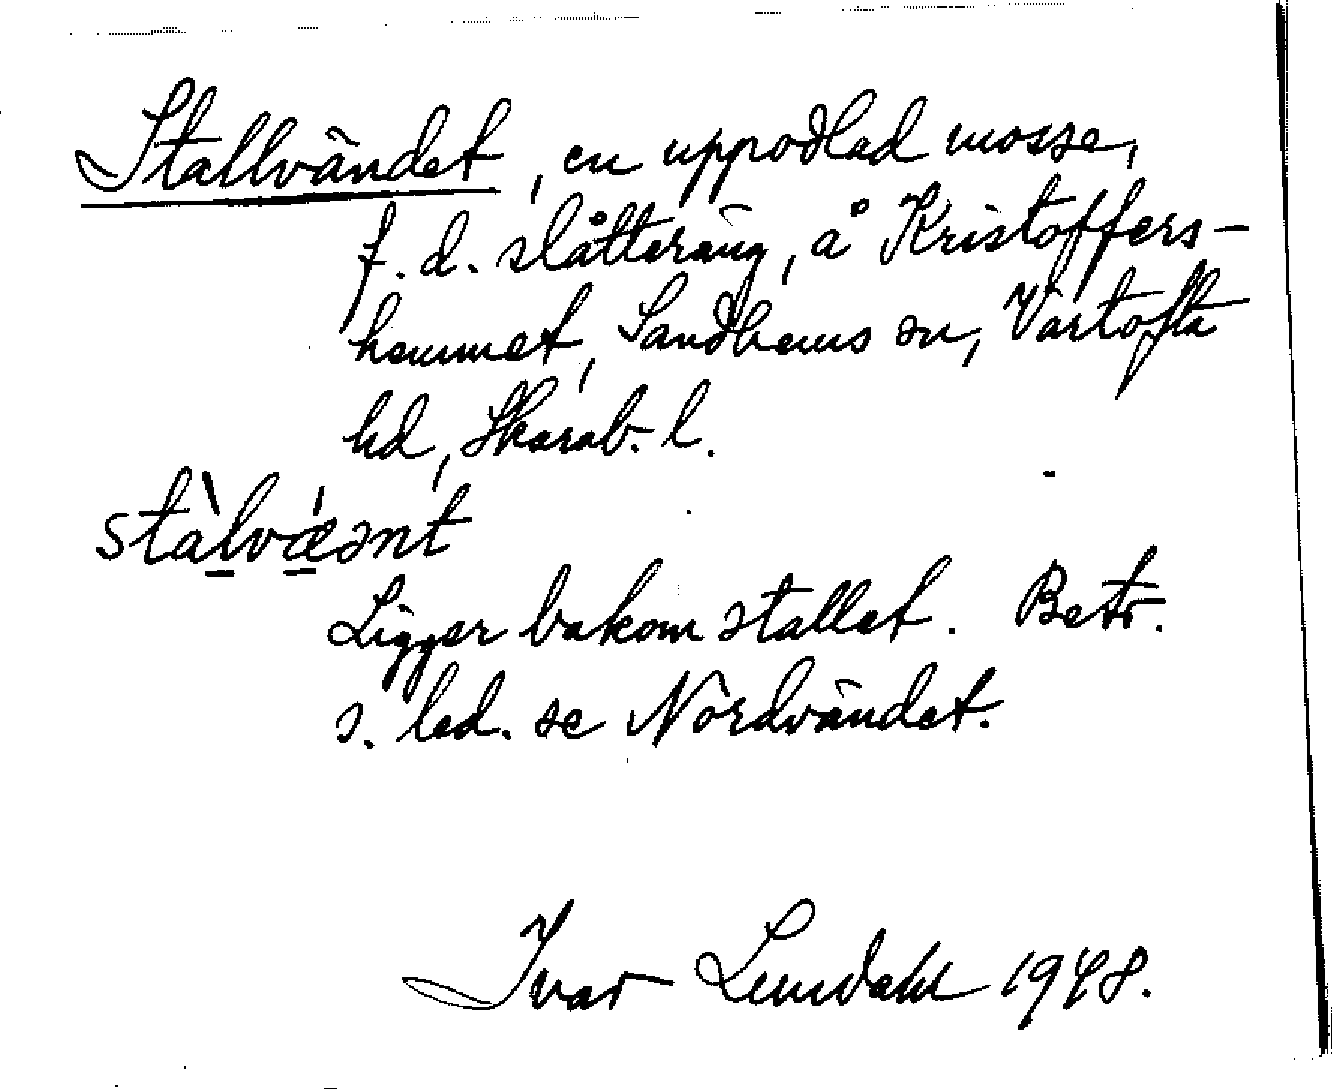 Stallvändet, en uppodlad mosse,
f. d. slåtteräng, å Kristoffers-
hemmet, Sandhems sn, Vartofta
hd, Skarab. l.
stàlvǽənt
Ligger bakom stallet. Betr.
s. led. se Nordvändet.
Ivar Lundahl 1948.